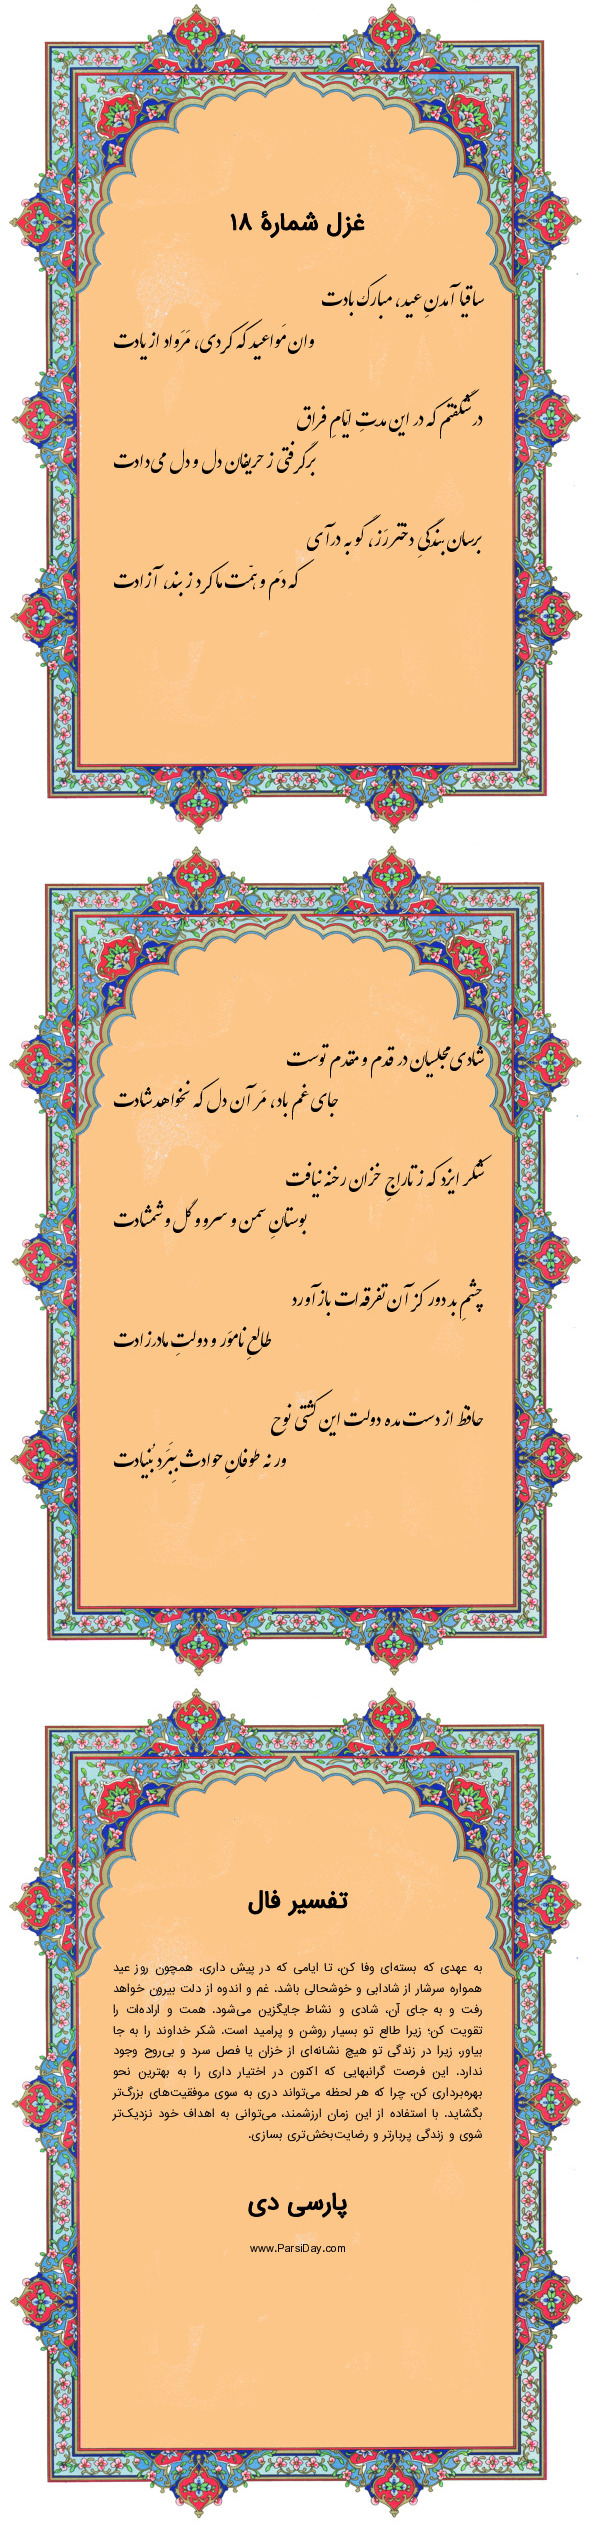 غزل شمارهٔ ۱۸
ساقیا آمدنِ عید، مبارک بادت
وان مَواعید که کردی، مَرَواد از یادت
در شگفتم که در این مدتِ ایّامِ فراق
برگرفتی ز حریفان دل و دل می‌دادت
برسان بندگیِ دختر رَز، گو به درآی
که دَم و همّت ما کرد ز بند، آزادت
شادی مجلسیان در قدم و مقدم توست
جای غم باد، مَر آن دل که نخواهد شادت
شکر ایزد که ز تاراجِ خزان رخنه نیافت
بوستانِ سمن و سرو و گل و شمشادت
چشمِ بد دور کز آن تفرقه‌ات بازآورد
طالعِ نامْوَر و دولتِ مادرزادت
حافظ از دست مده دولت این کشتی نوح
ور نه طوفانِ حوادث بِبَرَد بُنیادت
تفسیر فال
به عهدی که بسته‌ای وفا کن، تا ایامی که در پیش داری، همچون روز عید
همواره سرشار از شادابی و خوشحالی باشد. غم و اندوه از دلت بیرون خواهد
رفت و به جای آن، شادی و نشاط جایگزین می‌شود. همت و اراده‌ات را
تقویت کن؛ زیرا طالع تو بسیار روشن و پرامید است. شکر خداوند را به جا
بیاور، زیرا در زندگی تو هیچ نشانه‌ای از خزان یا فصل سرد و بی‌روح وجود
ندارد. این فرصت گرانبهایی که اکنون در اختیار داری را به بهترین نحو
بهره‌برداری کن، چرا که هر لحظه می‌تواند دری به سوی موفقیت‌های بزرگ‌تر
بگشاید. با استفاده از این زمان ارزشمند، می‌توانی به اهداف خود نزدیک‌تر
شوی و زندگی پربارتر و رضایت‌بخش‌تری بسازی.
پارسی دی
www.ParsiDay.com